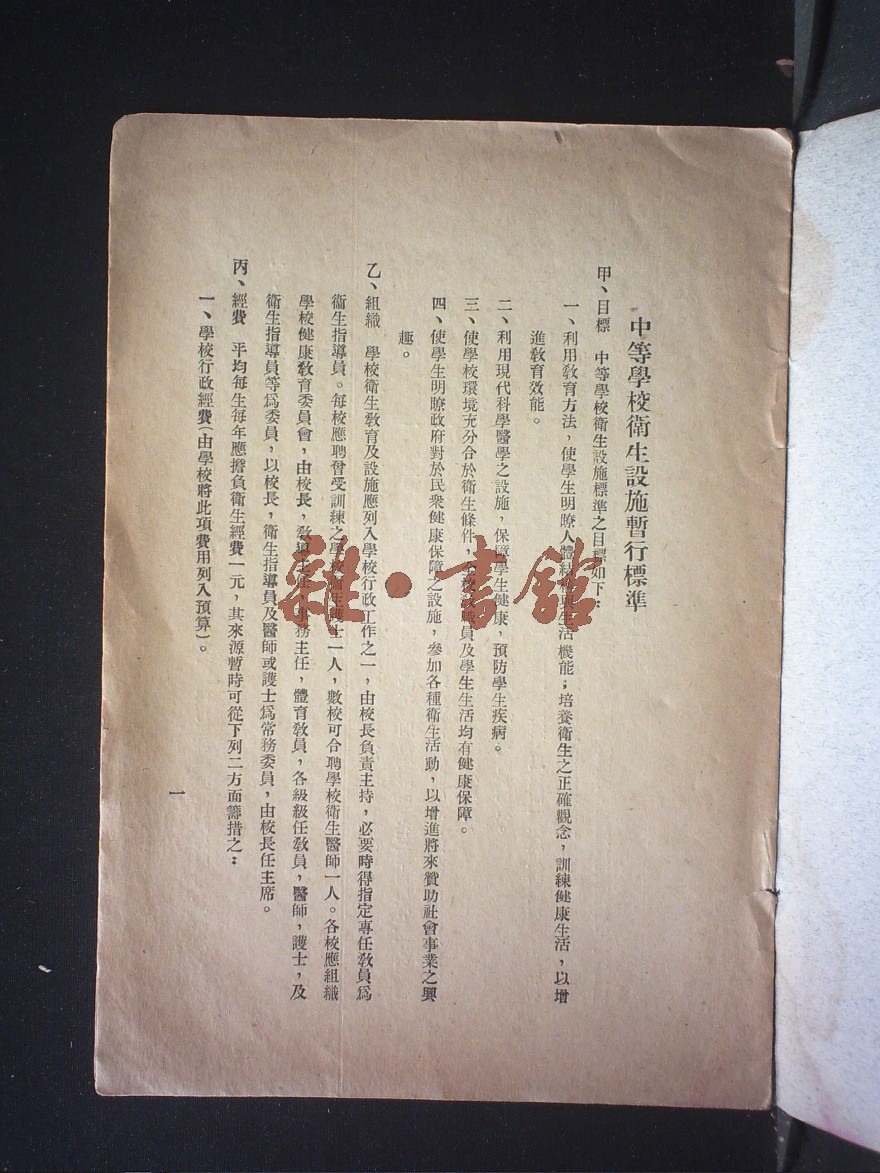 中等學校衛生設施暫行標準
甲、目標　中等學校衛生設施標準之目標如下：
一、利用敎育方法，使學生明瞭人體結構與生活機能；培養衛生之正確觀念，訓練健康生活，以增
進敎育效能。
二、利用現代科學醫學之設施，保障學生健康，預防學生疾病。
三、使學校環境充分合於衛生條件，全校敎職員及學生生活均有健康保障。
四、使學生明瞭政府對於民衆健康保障之設施，參加各種衛生活動，以增進將來贊助社會事業之興
趣。
乙、組織　學校衛生敎育及設施應列入學校行政工作之一，由校長負責主持，必要時得指定專任敎員爲
衛生指導員。每校應聘曾受訓練之學校衛生護士一人，數校可合聘學校衛生醫師一人。各校應組織
學校健康敎育委員會，由校長，敎導主任，事務主任，體育敎員，各級級任敎員，醫師，護士，及
衛生指導員等爲委員，以校長，衛生指導員及醫師或護士爲常務委員，由校長任主席。
丙、經費　平均每生每年應擔負衛生經費一元，其來源暫時可從下列二方面籌措之：
一、學校行政經費（由學校將此項費用列入預算）。
一
雜·書館